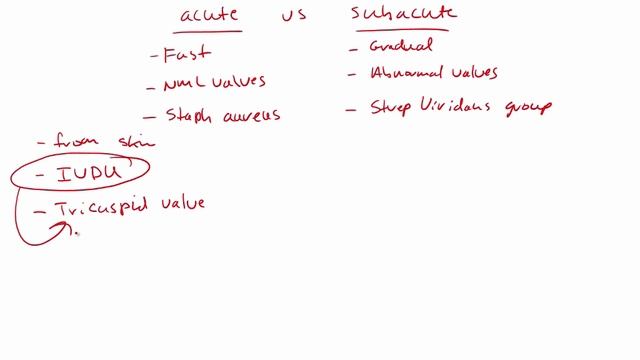 acute vs subacute
- Fast
- Gradual
- NML valves
- Abnormal valves
- Staph aureus
- Strep Viridans group
- from skin
- IVDU
- Tricuspid valve